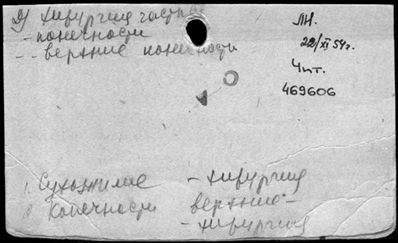 2) Хирургия частная
- конечности
- - верхние конечности
ЛН.
22/XI 54г.
Чит.
469606
1. Сухожилие - хирургия
2 Конечности верхние -
- хирургия